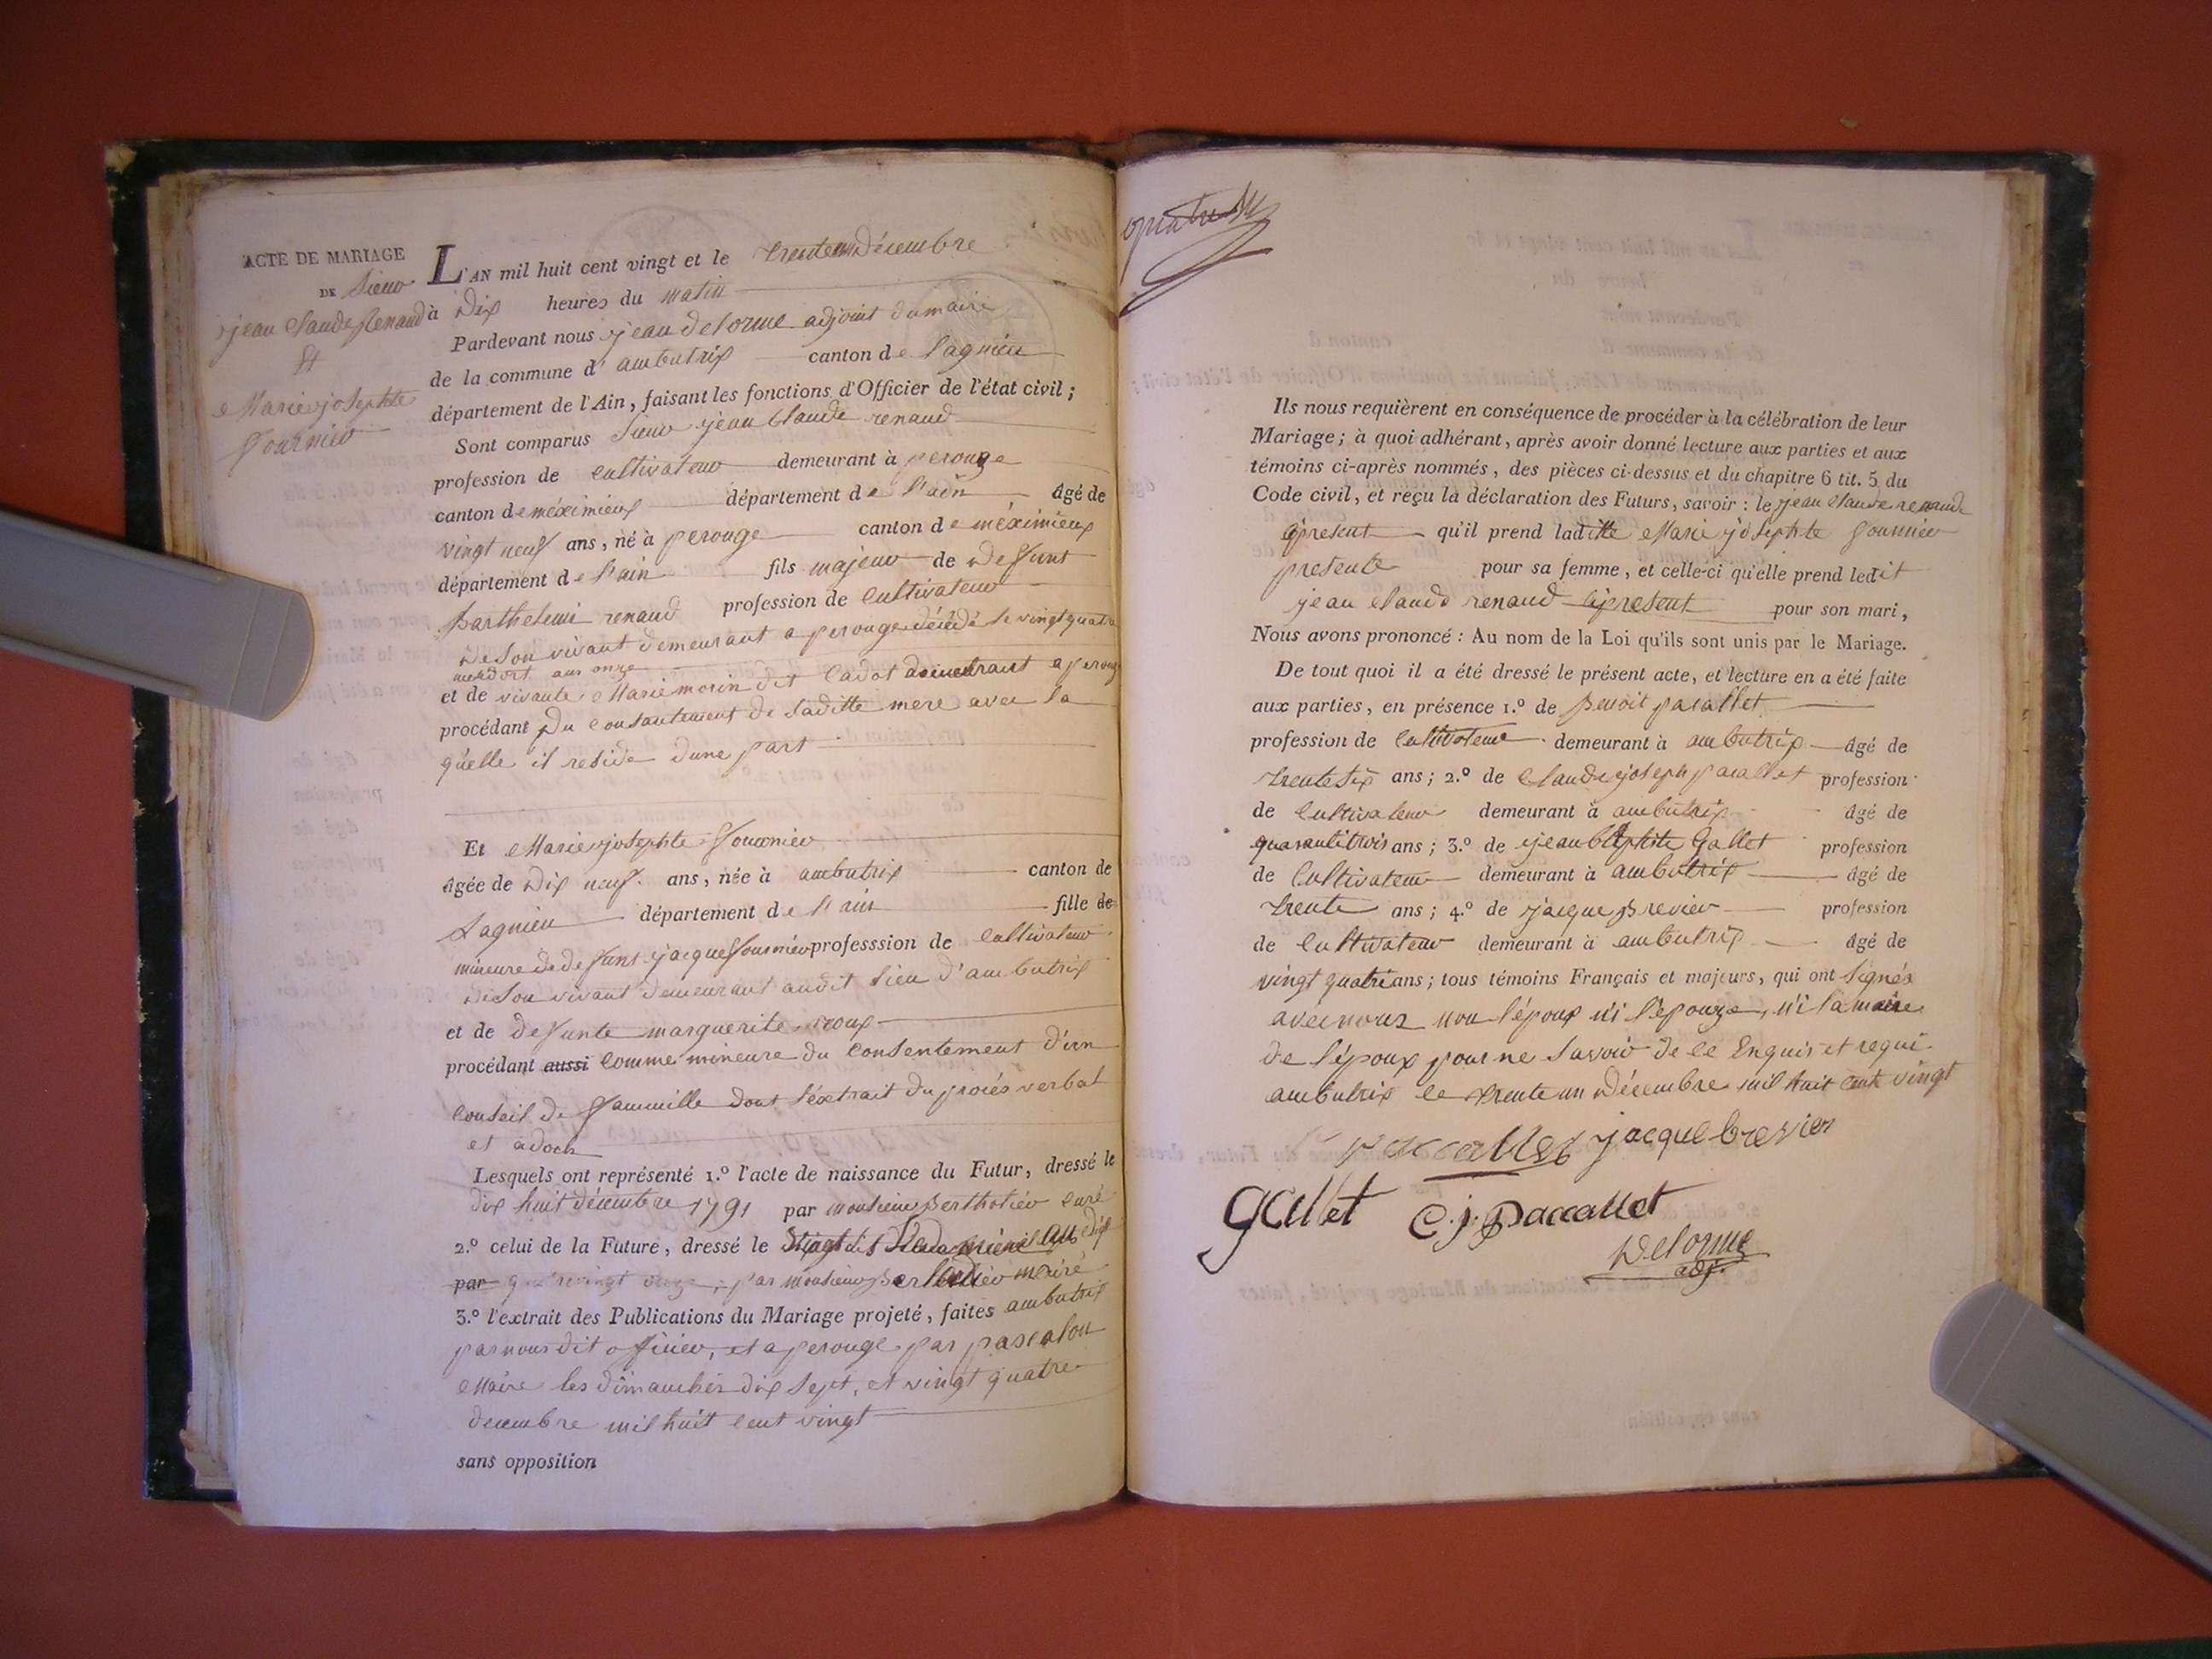 ACTE DE MARIAGE
DE Sieur
jean Claude Renaud
Et
Marie josephte
fournier
L'AN mil huit cent vingt et le trente un Décembre
à Dix heures du matin
Pardevant nous jean delorme adjoint du maire
de la commune d'ambutrix canton de lagnieu
département de l'Ain, faisant les fonctions d'Officier de l'état civil;
Sont comparus Sieur jean Claude renaud
profession de cultivateur demeurant à perouge
canton de méximieux département de l'ain âgé de
vingt neuf ans, né à perouge canton de méximieux
département de l'ain fils majeur de Defunt
Barthelemi renaud profession de cultivateur
De son vivant demeurant a perouge décédé le vingt quatre
ans onze
et de vivante Marie morin dit Cadot demeurant a perouge
procédant Du consantement de saditte mere avec la
quelle il reside d'une part
Et Marie josephte fournier
âgée de Dix neuf ans, née à ambutrix canton de
Lagnieu département de l'ain fille de
mineure de defunt jacque fournier professsion de cultivateur
De son vivant demeurant audit lieu d'ambutrix
et de defunte marguerite roux
procédant aussi comme mineure du consentement d'un
conseil de fammille dont l'éxtrait du procés verbal
et adoch
Lesquels ont représenté 1.º l'acte de naissance du Futur, dressé le
dix huit décembre 1791 par monsieur Bertholier curé
2.º celui de la Future, dressé le
par par monsieur
3.º l'extrait des Publications du Mariage projeté, faites ambutrix
par nous dit officier, et a perouge par pascalon
Maire les dimanches dix sept, et vingt quatre
decembre mil huit cent vingt
sans opposition
Ils nous requièrent en conséquence de procéder à la célébration de leur
Mariage; à quoi adhérant, après avoir donné lecture aux parties et aux
témoins ci-après nommés, des pièces ci-dessus et du chapitre 6 tit. 5 du
Code civil, et reçu la déclaration des Futurs, savoir: le jean Claude renaud
present qu'il prend laditte Marie josephte fournier
presente pour sa femme, et celle-ci qu'elle prend ledit
jean Claude renaud present pour son mari,
Nous avons prononcé: Au nom de la Loi qu'ils sont unis par le Mariage.
De tout quoi il a été dressé le présent acte, et lecture en a été faite
aux parties, en présence 1.º de Benoit pacallet
profession de cultivateur demeurant à ambutrix âgé de
trente six ans; 2.º de Claude joseph pacallet profession
de cultivateur demeurant à ambutrix âgé de
quarante trois ans; 3.º de jean Baptiste Gallet profession
de cultivateur demeurant à ambutrix âgé de
trente ans; 4.º de jacque Brevier profession
de cultivateur demeurant à ambutrix âgé de
vingt quatre ans; tous témoins Français et majeurs, qui ont signés
avec nous non l'époux n'i l'épouze, n'i la maire
de l'époux pour ne savoir de ce Enquis et requi
ambutrix le trente un Décembre mil huit cent vingt
paccallet jacque brevier
gallet C. j. paccallet
Delorme
adj.